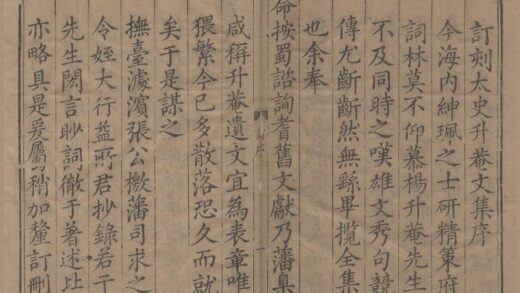 訂刻太史升菴文集序
今海内紳珮之士研精策府
詞林莫不仰慕楊升菴先生
不及同時之嘆雄文秀句競
傳尤斷斷然無繇畢攬全集
也余奉
命按蜀諮詢耆舊文獻乃藩臬
序
咸稱升菴遺文宜為表章唯
猥繁今已多散落恐久而就
矣于是謀之
撫臺濾濱張公檄藩司求之
令姪大行益所君抄錄若干
先生閎言眇詞徹于著述比
亦略具是爰屬稍加釐訂刪